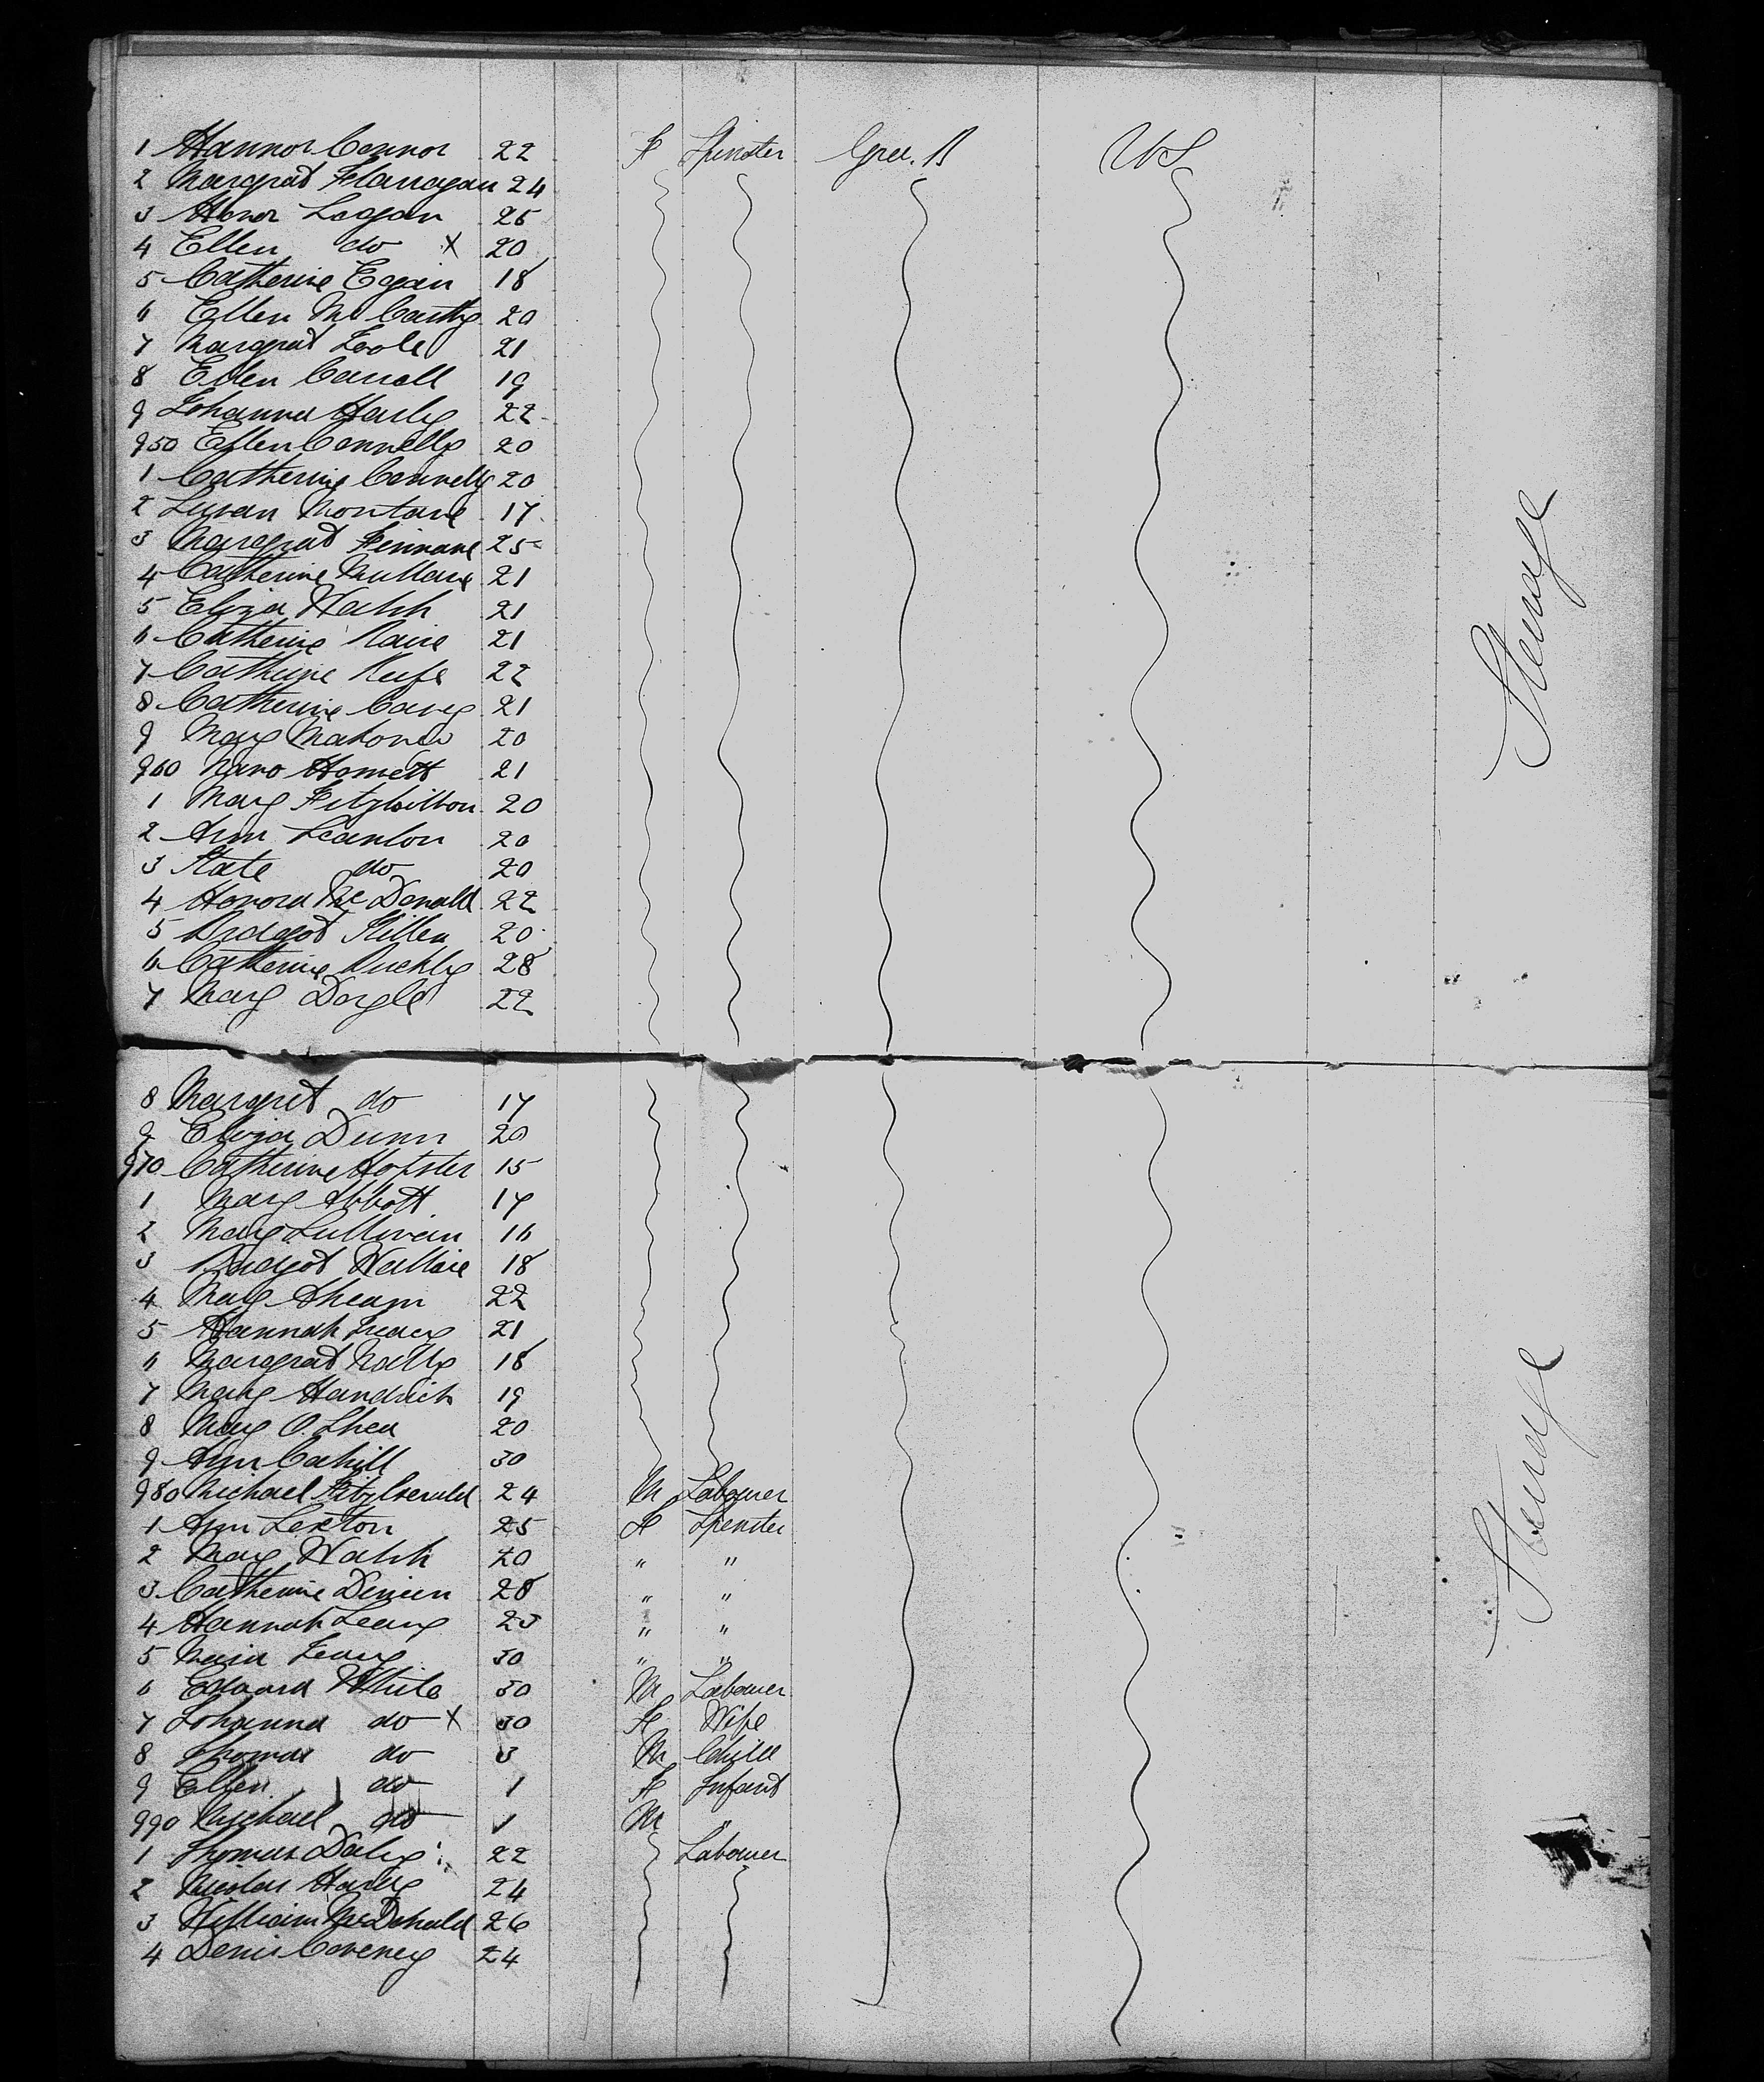 1 Hannor Connor 22 F Spinster Gre. B US
2 Margrat Flanagan 24
3 Honor Logan 25
4 Ellen do X 20
5 Catherine Egan 18
6 Ellen Mc Carthy 20
7 Margrat Toole 21
8 Ellen Carroll 19
9 Johanna Harly 22
950 Ellen Connelly 20
1 Catherine Connelly 20
2 Susan Montane 17
3 Margrat Finnane 25
4 Catherine Mullane 21
5 Eliza Walsh 21
6 Catherine 21
7 Catherine Keefe 22
8 Catherine Carey 21
9 Mary Mahoney 20
960 Nano 21
1 Mary Fitzgibbon 20
2 Ann Scanlon 20
3 Kate do 20
4 Honora Mc Donald 22
5 Bridget Killen 20
6 Catherine Buckly 28
7 Mary Doyle 22
Steerage
8 Margret do 17
9 Eliza Dunn 20
970 Catherine 15
1 Mary Abbott 17
2 Mary Sullivan 16
3 Bridget Wallace 18
4 Mary Ahearn 22
5 Hannah 21
6 Margrat Nally 18
7 Mary Handrick 19
8 Mary O. Shea 20
9 Ann Cahill 30
980 Michael Fitzgerald 24 M Labourer
1 Ann Sexton 25 F Spinster
2 Mary Walsh 20 " "
3 Catherine 28 " "
4 Hannah Leary 23 " "
5 Maria Leary 30 " "
6 Edward White 30 M Labourer
7 Johanna do X 30 F Wife
8 Thomas do 3 M Child
9 Ellen do 1 F Infant
990 Michael do 1 M "
1 Thomas Daly 22 Labourer
2 Nicolas Harly 24
3 William Mc Donald 26
4 Denis Coveney 24
Steerage